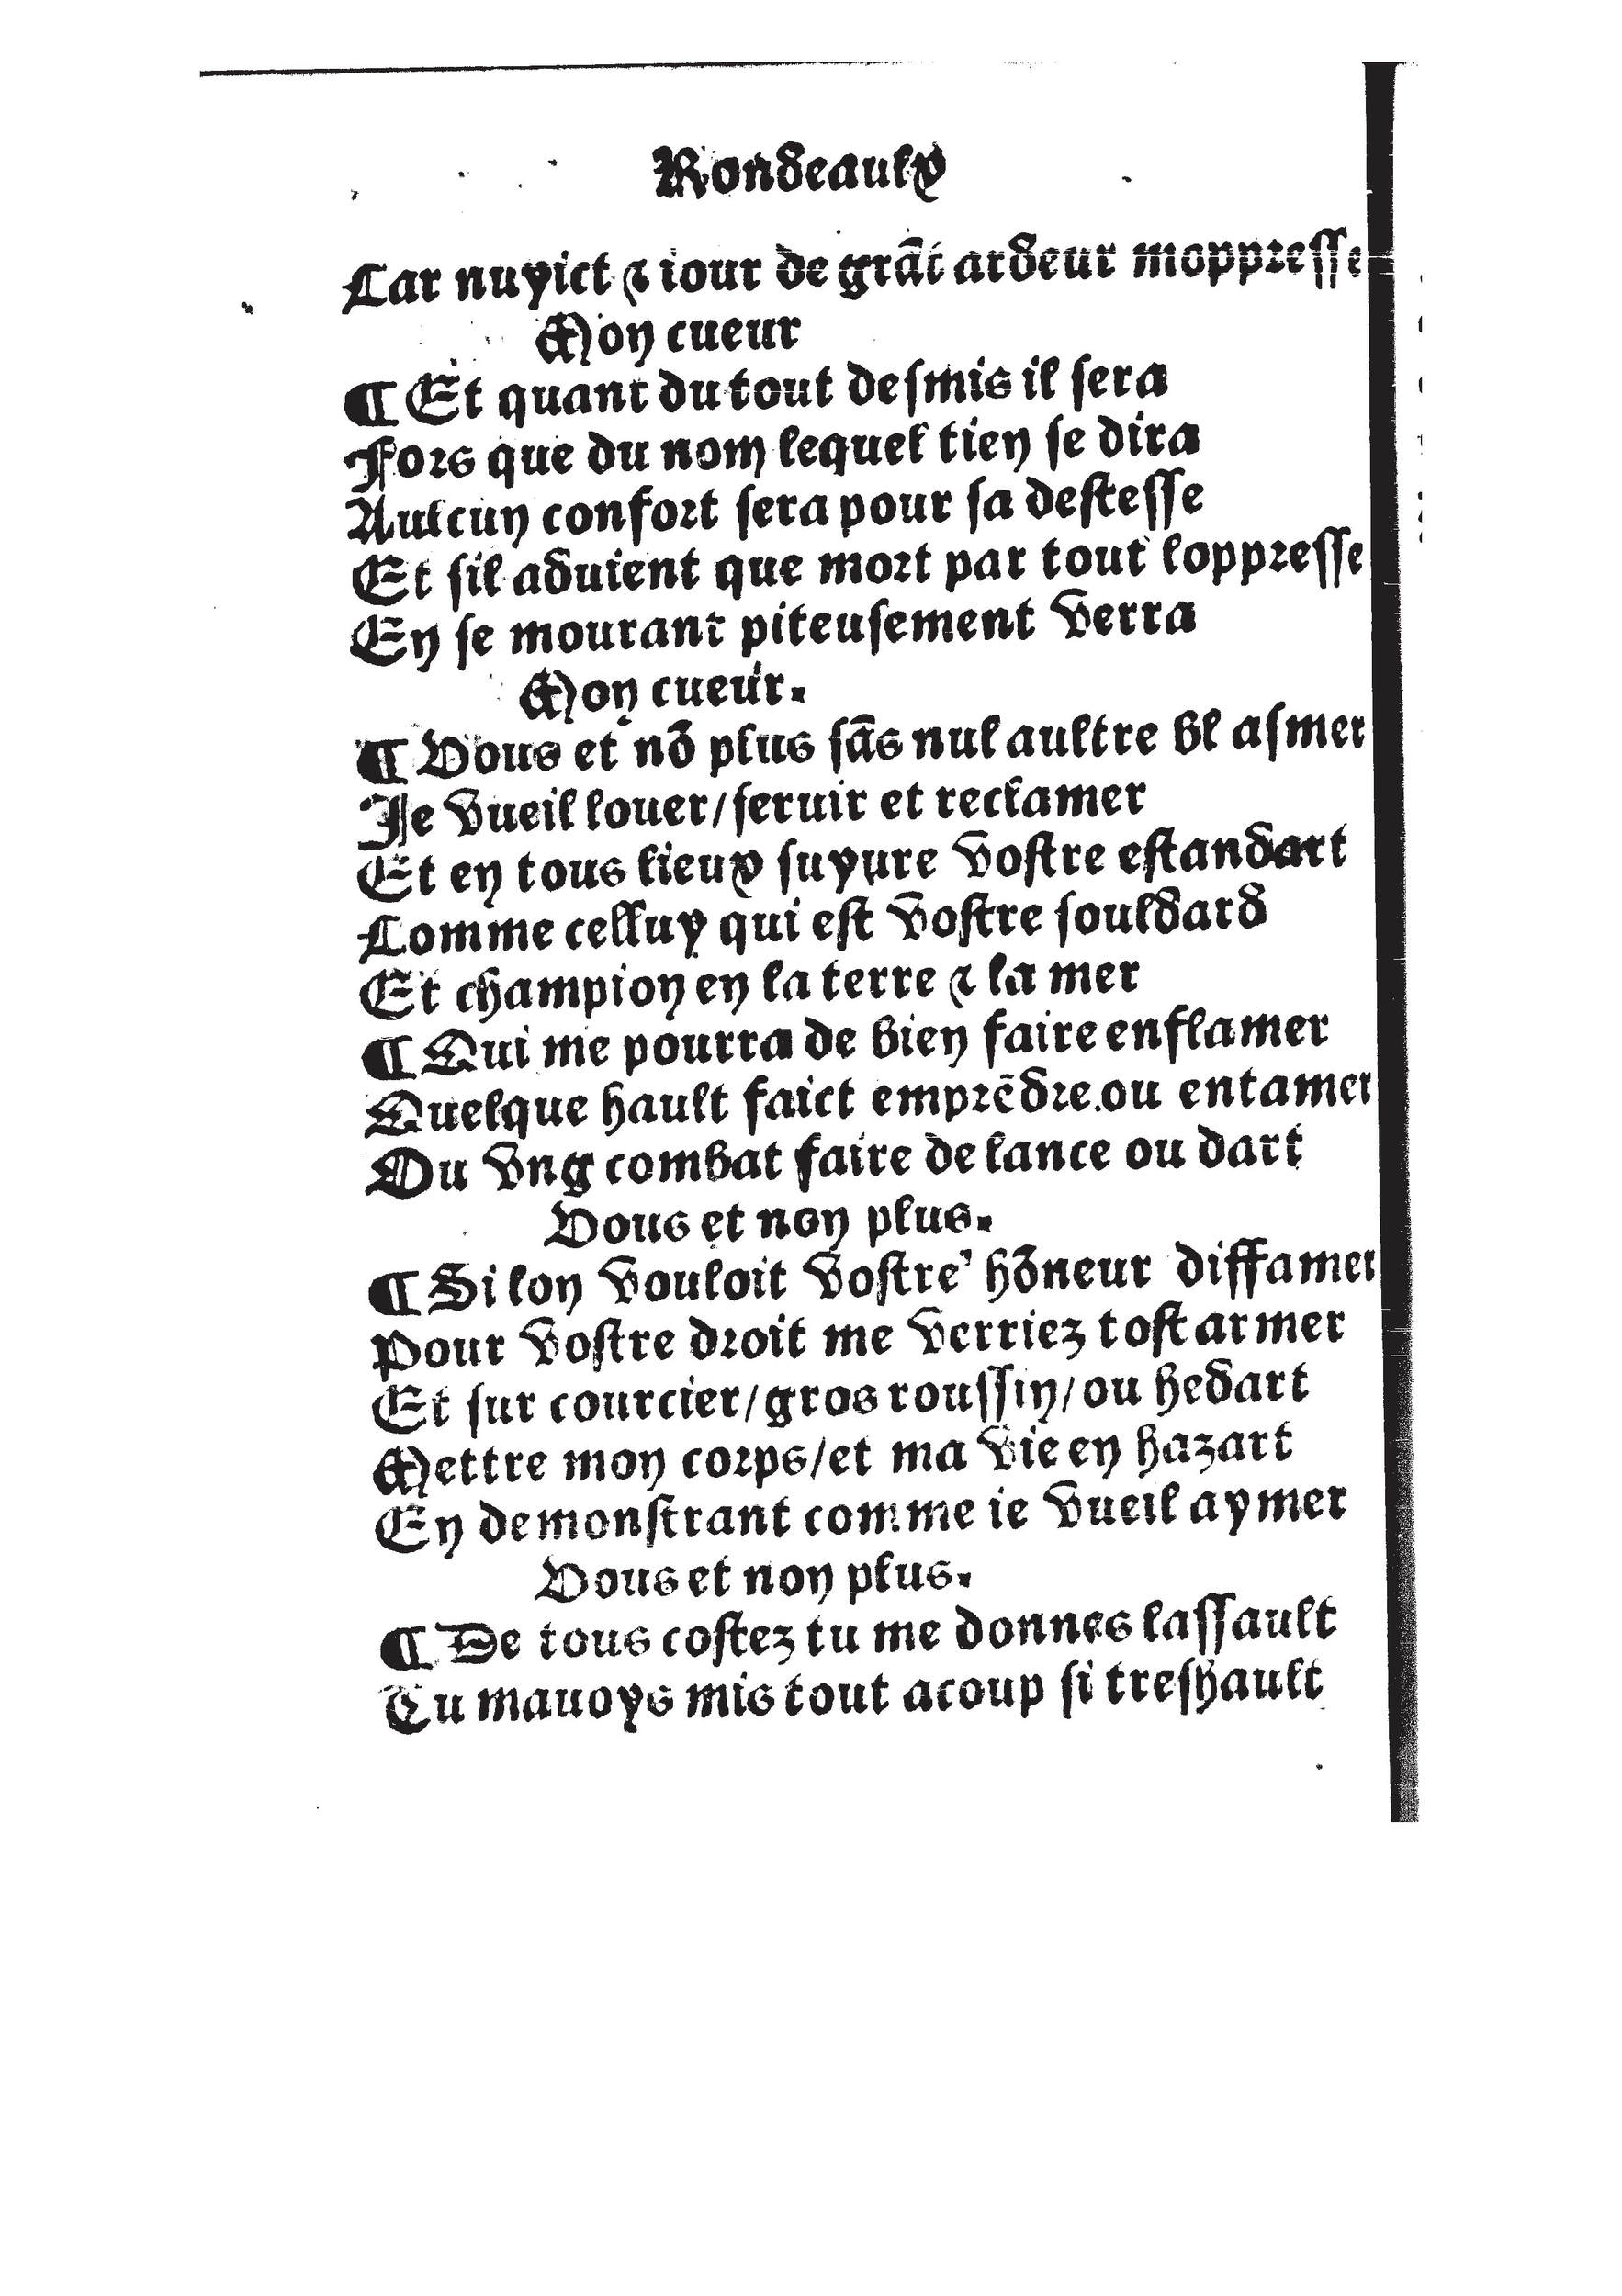 Rondeaulx
Car nuyict ⁊ iour de grāt ardeur moppresse
Mon cueur
¶ Et quant du tout desmis il sera
Fors que du nom lequel tien se dira
Aulcun confort sera pour sa destesse
Et sil aduient que mort par tout loppresse
En se mourant piteusement verra
Mon cueur.
¶ Vous et nō plus sās nul aultre bl asmer
Je vueil louer/seruir et reclamer
Et en tous lieux suyure vostre estandart
Comme celluy qui est vostre souldard
Et champion en la terre ⁊ la mer
¶ Qui me pourra de bien faire enflamer
Quelque hault faict emprēdre.ou entamer
Ou vng combat faire de lance ou dart
Vous et non plus.
¶ Si lon vouloit vostre' hōneur diffamer
Pour vostre droit me verriez tost armer
Et sur courcier/gros roussin/ou hedart
Mettre mon corps/et ma vie en hazart
En demonstrant comme ie vueil aymer
Vous et non plus.
¶ De tous costez tu me donnes lassault
Tu mauoys mis tout acoup si treshault